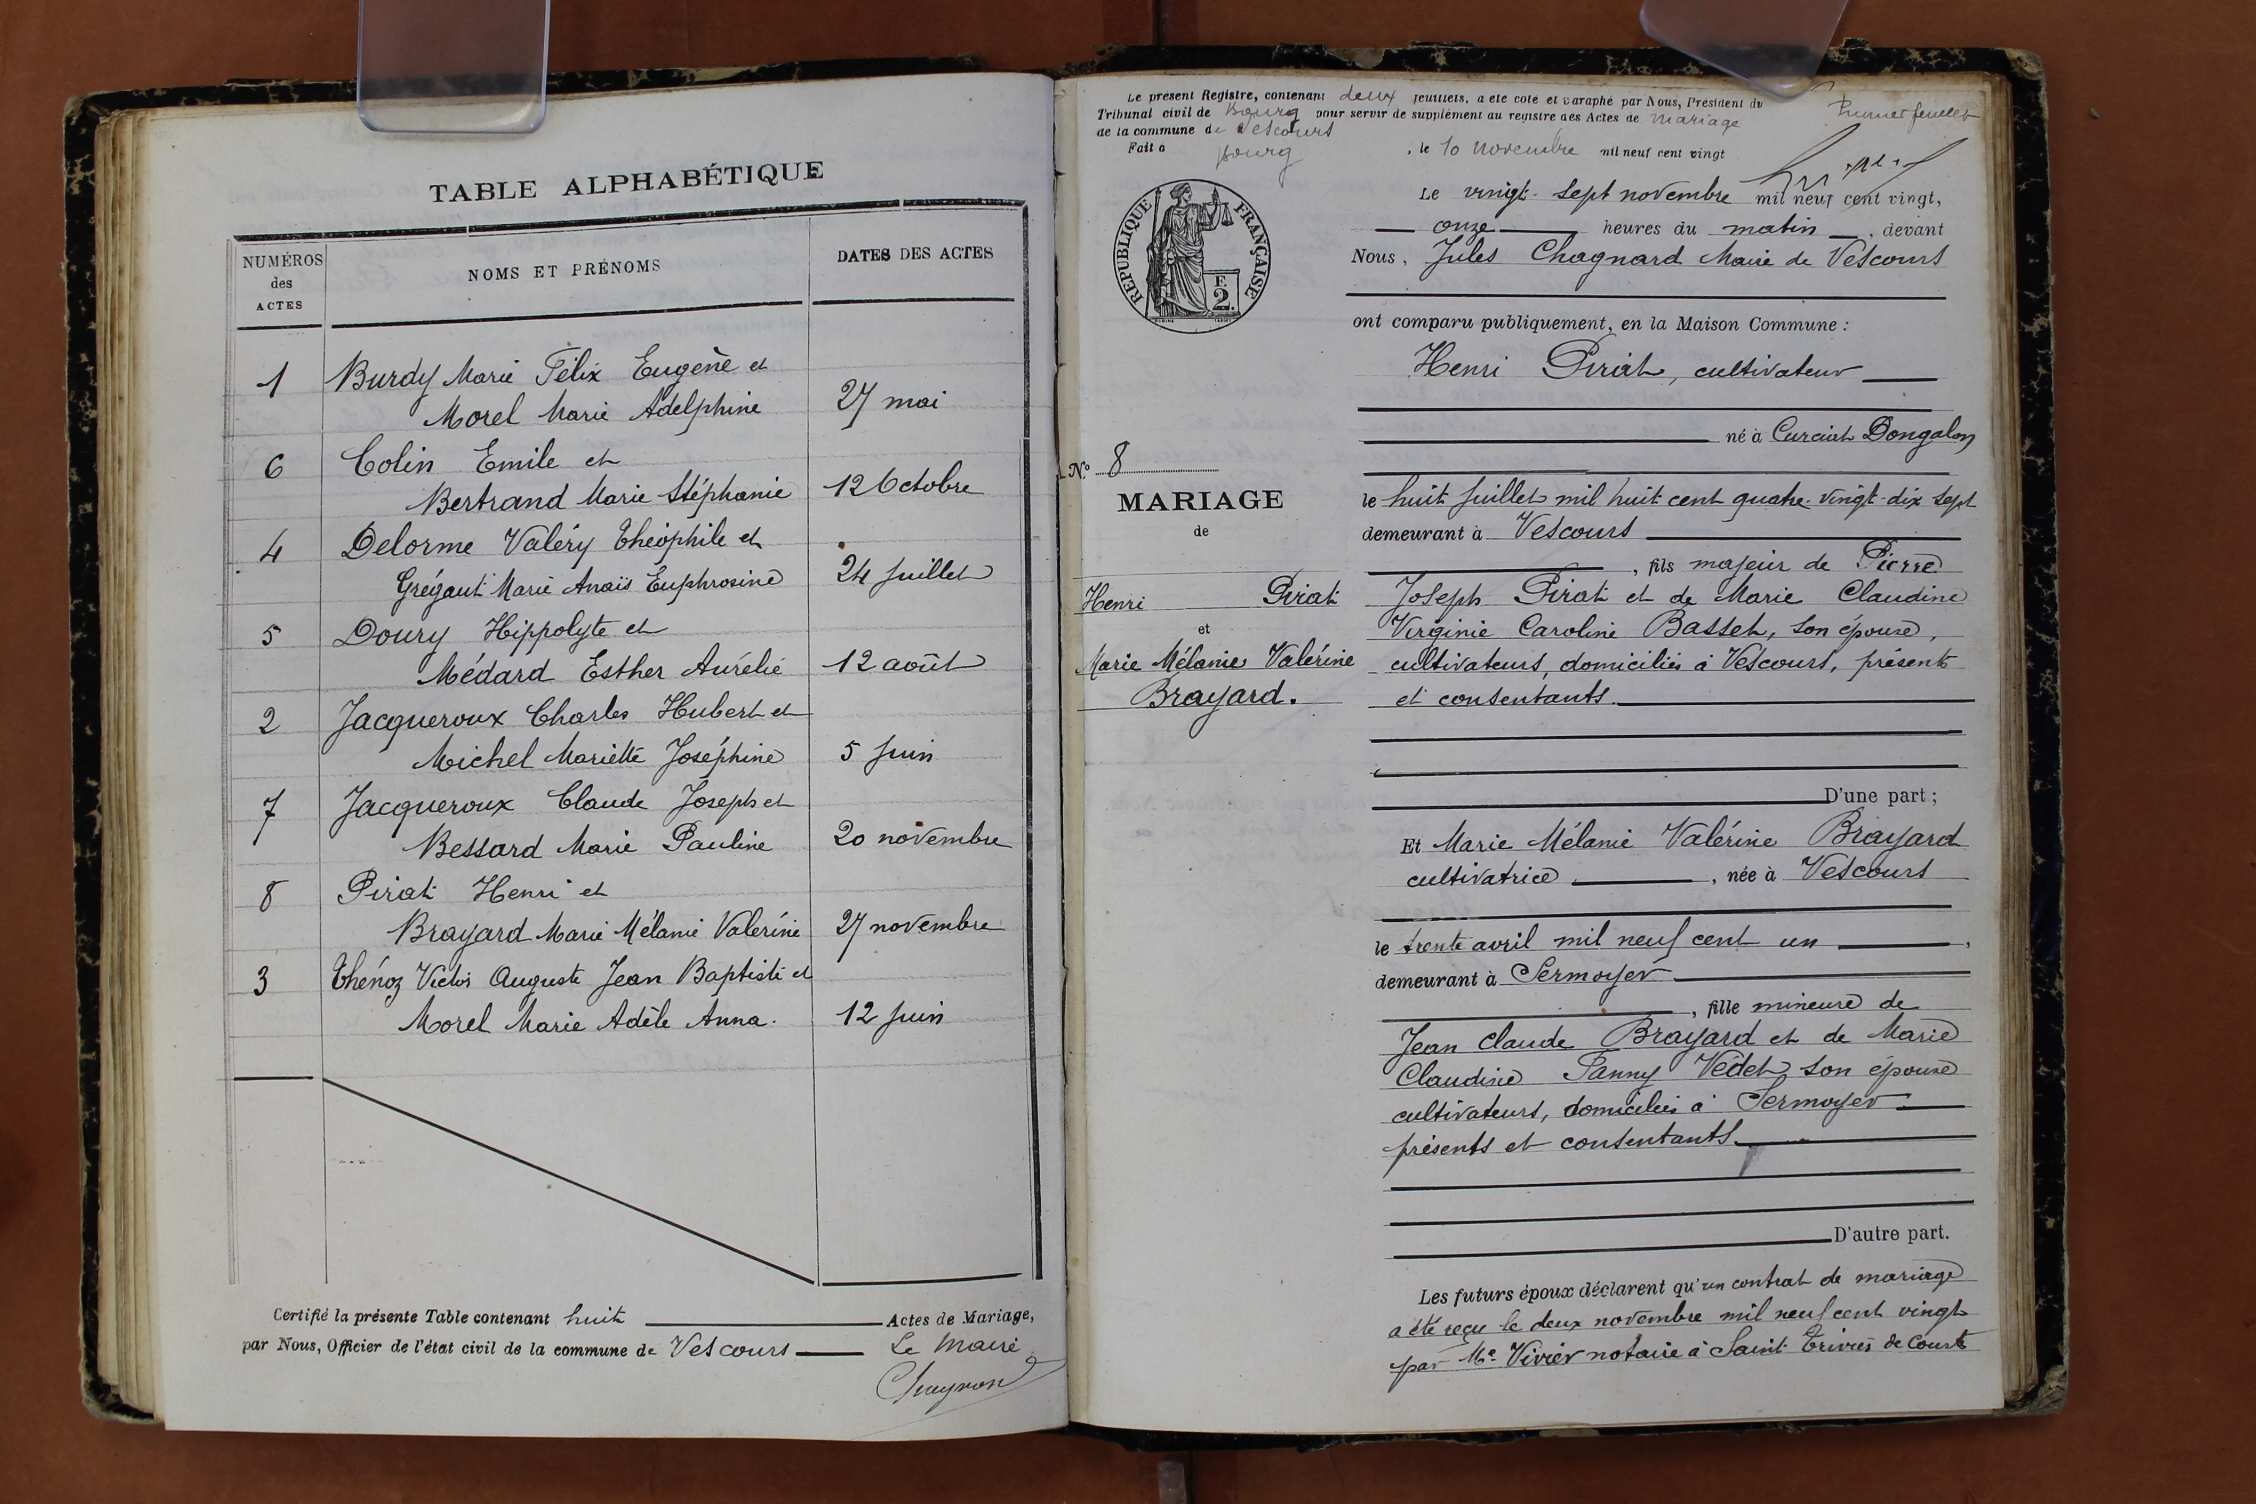 TABLE ALPHABÉTIQUE
NUMÉROS
des
ACTES
NOMS ET PRÉNOMS
DATES DES ACTES
1 Burdy Marie Félix Eugène et
Morel Marie Adelphine 27 mai
6 Colin Emile et
Bertrand Marie Stéphanie 12 Octobre
4 Delorme Valéry Théophile et
Grégaut Marie Anaïs Euphrosine 24 juillet
5 Doury Hippolyte et
Médard Esther Aurélie 12 août
2 Jacqueroux Charles Hubert et
Michel Mariette Joséphine 5 juin
7 Jacqueroux Claude Joseph et
Bessard Marie Pauline 20 novembre
8 Pirat Henri et
Brayard Marie Mélanie Valérine 27 novembre
3 Thénoz Victor Auguste Jean Baptiste et
Morel Marie Adèle Anna. 12 juin
Certifié la présente Table contenant huit Actes de Mariage,
par Nous, Officier de l'état civil de la commune de Vescours Le Maire
Le présent Registre, contenant deux feuillets, a été coté et paraphé par Nous, Président du
Tribunal civil de Bourg pour servir de supplément au registre des Actes de mariage
de la commune de Vescours
Fait à Bourg, le 10 novembre mil neuf cent vingt
Premier feuillet
RÉPUBLIQUE FRANÇAISE
F.
2.
Le vingt-sept novembre mil neuf cent vingt,
onze heures du matin, devant
Nous, Jules Chagnard Maire de Vescours
ont comparu publiquement, en la Maison Commune :
Henri Pirat, cultivateur
né à Curciat Dongalon
le huit juillet mil huit cent quatre-vingt-dix sept
demeurant à Vescours
, fils majeur de Pierre
Joseph Pirat et de Marie Claudine
Virginie Caroline Basset, son épouse,
cultivateurs, domiciliés à Vescours, présents
et consentants.
D'une part ;
N° 8
MARIAGE
de
Henri Pirat
et
Marie Mélanie Valérine
Brayard.
Et Marie Mélanie Valérine Brayard
cultivatrice, née à Vescours
le trente avril mil neuf cent un,
demeurant à Sermoyer
, fille mineure de
Jean Claude Brayard et de Marie
Claudine Fanny Vêdet son épouse
cultivateurs, domiciliés à Sermoyer
présents et consentants.
D'autre part.
Les futurs époux déclarent qu'un contrat de mariage
a été reçu le deux novembre mil neuf cent vingt
par Me Vivier notaire à Saint-Trivier de Courtes